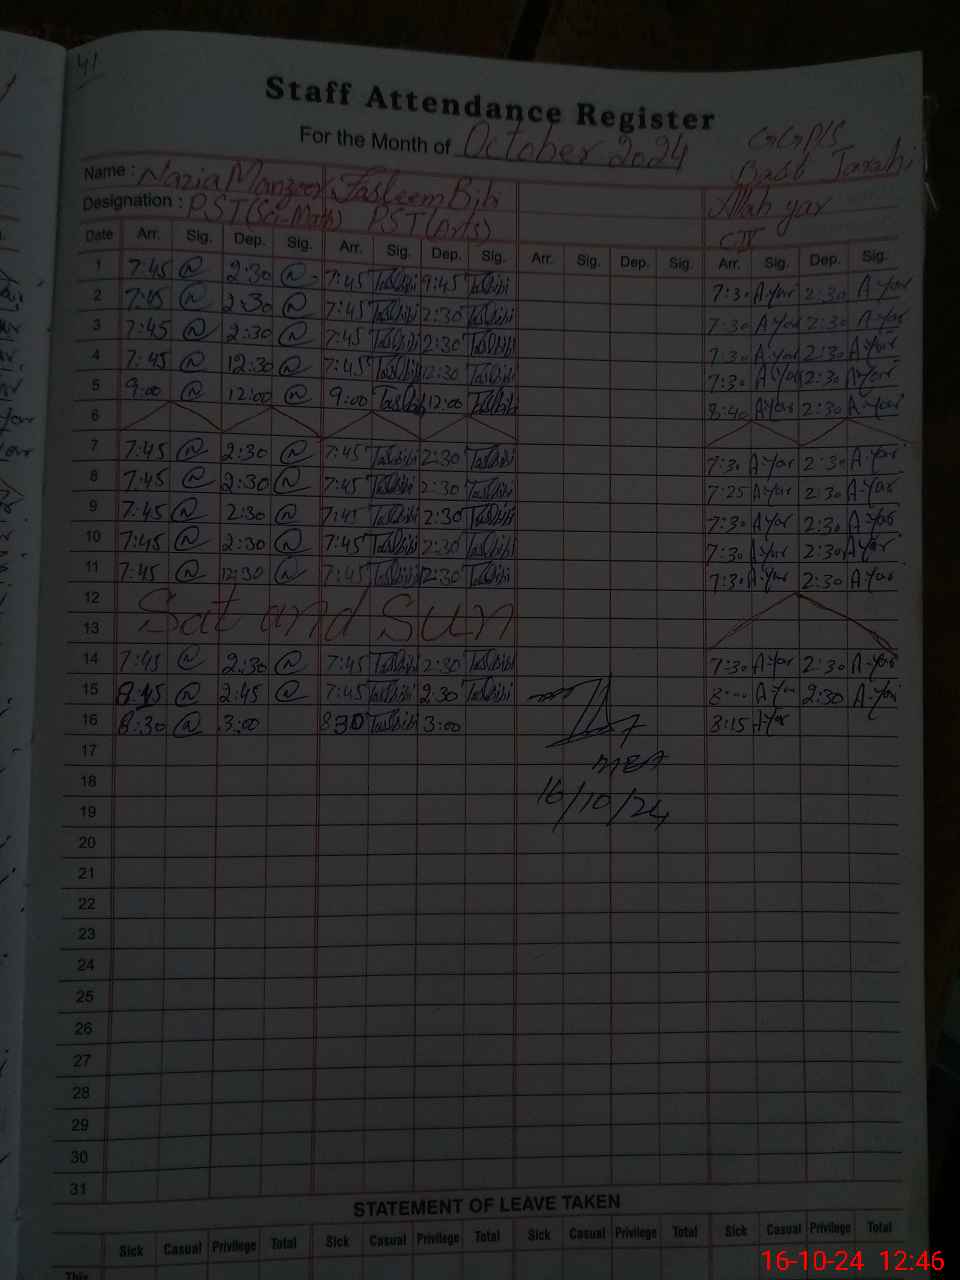 41
Staff Attendance Register
For the Month of October 2024
GGPS
Basti
Name : Nazia Manzoor Tasleem Bibi Allah yar
Designation : PST(Sci-Math) PST(Arts)
Date Arr. Sig. Dep. Sig. Arr. Sig. Dep. Sig. Arr. Sig. Dep. Sig. Arr. Sig. Dep. Sig.
1 7:45 2:30 7:45 Tasbibi 9:45 Tasbibi 7:30 A.Yar 2:30 A.Yar
2 7:45 2:30 7:45 Tasbibi 2:30 Tasbibi 7:30 A.Yar 2:30 A.Yar
3 7:45 2:30 7:45 Tasbibi 2:30 Tasbibi 7:30 A.Yar 2:30 A.Yar
4 7:45 12:30 7:45 Tasbibi 12:30 Tasbibi 7:30 A.Yar 2:30 A.Yar
5 9:00 12:00 9:00 Tasbibi 12:00 Tasbibi 8:40 A.Yar 2:30 A.Yar
6
7 7:45 2:30 7:45 Tasbibi 2:30 Tasbibi 7:30 A.Yar 2:30 A.Yar
8 7:45 2:30 7:45 Tasbibi 2:30 Tasbibi 7:25 A.Yar 2:30 A.Yar
9 7:45 2:30 7:45 Tasbibi 2:30 Tasbibi 7:30 A.Yar 2:30 A.Yar
10 7:45 2:30 7:45 Tasbibi 2:30 Tasbibi 7:30 A.Yar 2:30 A.Yar
11 7:45 12:30 7:45 Tasbibi 12:30 Tasbibi 7:30 A.Yar 2:30 A.Yar
12
Sat and Sun
13
14 7:45 2:30 7:45 Tasbibi 2:30 Tasbibi 7:30 A.Yar 2:30 A.Yar
15 8:45 2:45 7:45 Tasbibi 2:30 Tasbibi 8:00 A.Yar 2:30 A.Yar
16 8:30 3:00 8:30 Tasbibi 3:00 8:15 A.Yar
17
MEA
18
16/10/24
19
20
21
22
23
24
25
26
27
28
29
30
31
STATEMENT OF LEAVE TAKEN
Sick Casual Privilege Total Sick Casual Privilege Total Sick Casual Privilege Total Sick Casual Privilege Total
This
16-10-24 12:46